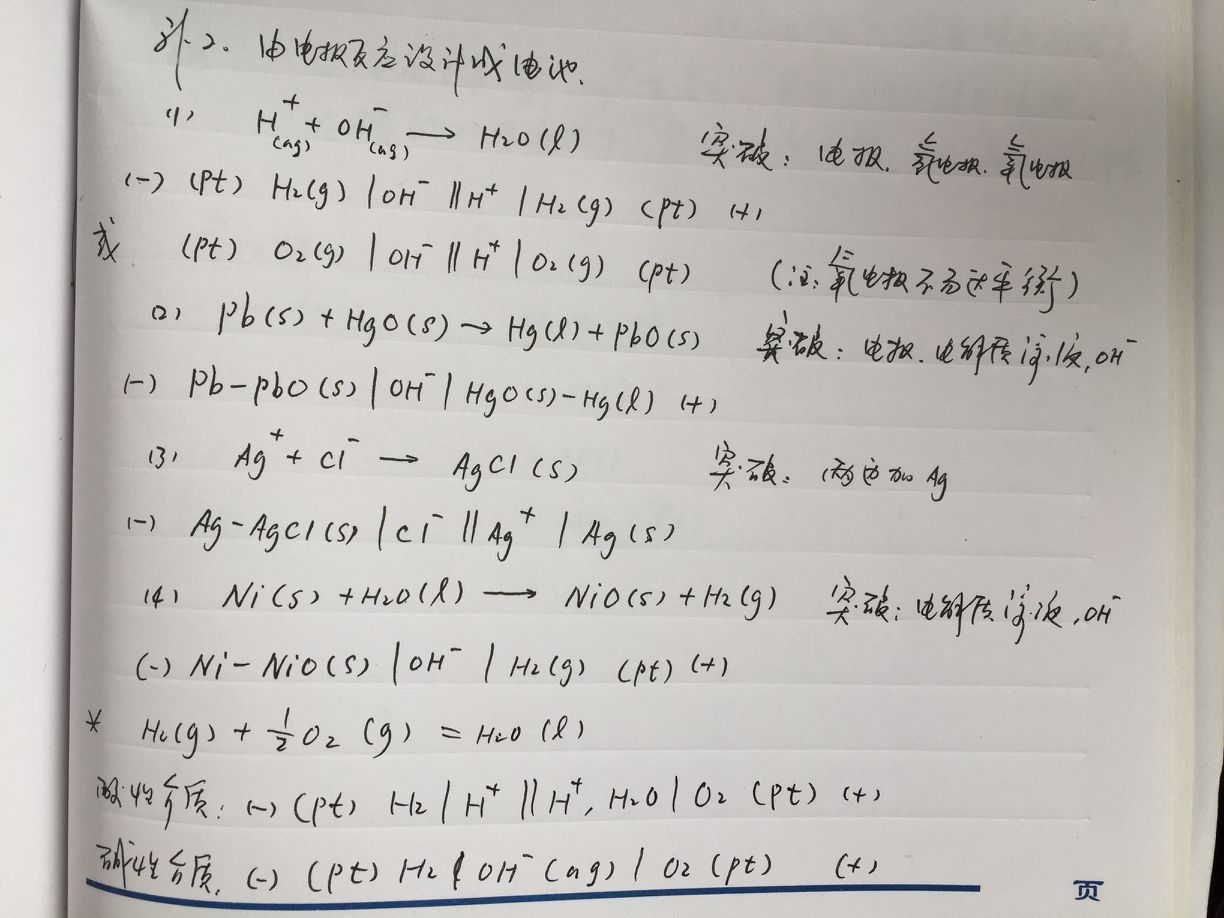 补2. 由电极反应设计成电池.
(1) H⁺(aq) + OH⁻(aq) ⟶ H₂O(l) 突破: 电极. 氢电极. 氧电极
(-) (pt) H₂(g) | OH⁻ || H⁺ | H₂(g) (pt) (+)
或 (pt) O₂(g) | OH⁻ || H⁺ | O₂(g) (pt) (注: 氧电极不易达平衡)
(2) Pb(s) + HgO(s) → Hg(l) + PbO(s) 突破: 电极. 电解质溶液, OH⁻
(-) Pb-PbO(s) | OH⁻ | HgO(s)-Hg(l) (+)
(3) Ag⁺ + Cl⁻ ⟶ AgCl(s) 突破: 两边加Ag
(-) Ag-AgCl(s) | Cl⁻ || Ag⁺ | Ag(s)
(4) Ni(s) + H₂O(l) ⟶ NiO(s) + H₂(g) 突破: 电解质溶液, OH⁻
(-) Ni-NiO(s) | OH⁻ | H₂(g) (pt) (+)
* H₂(g) + ½O₂(g) = H₂O(l)
酸性介质: (-) (pt) H₂ | H⁺ || H⁺, H₂O | O₂ (pt) (+)
碱性介质. (-) (pt) H₂ | OH⁻(aq) | O₂ (pt) (+)
页